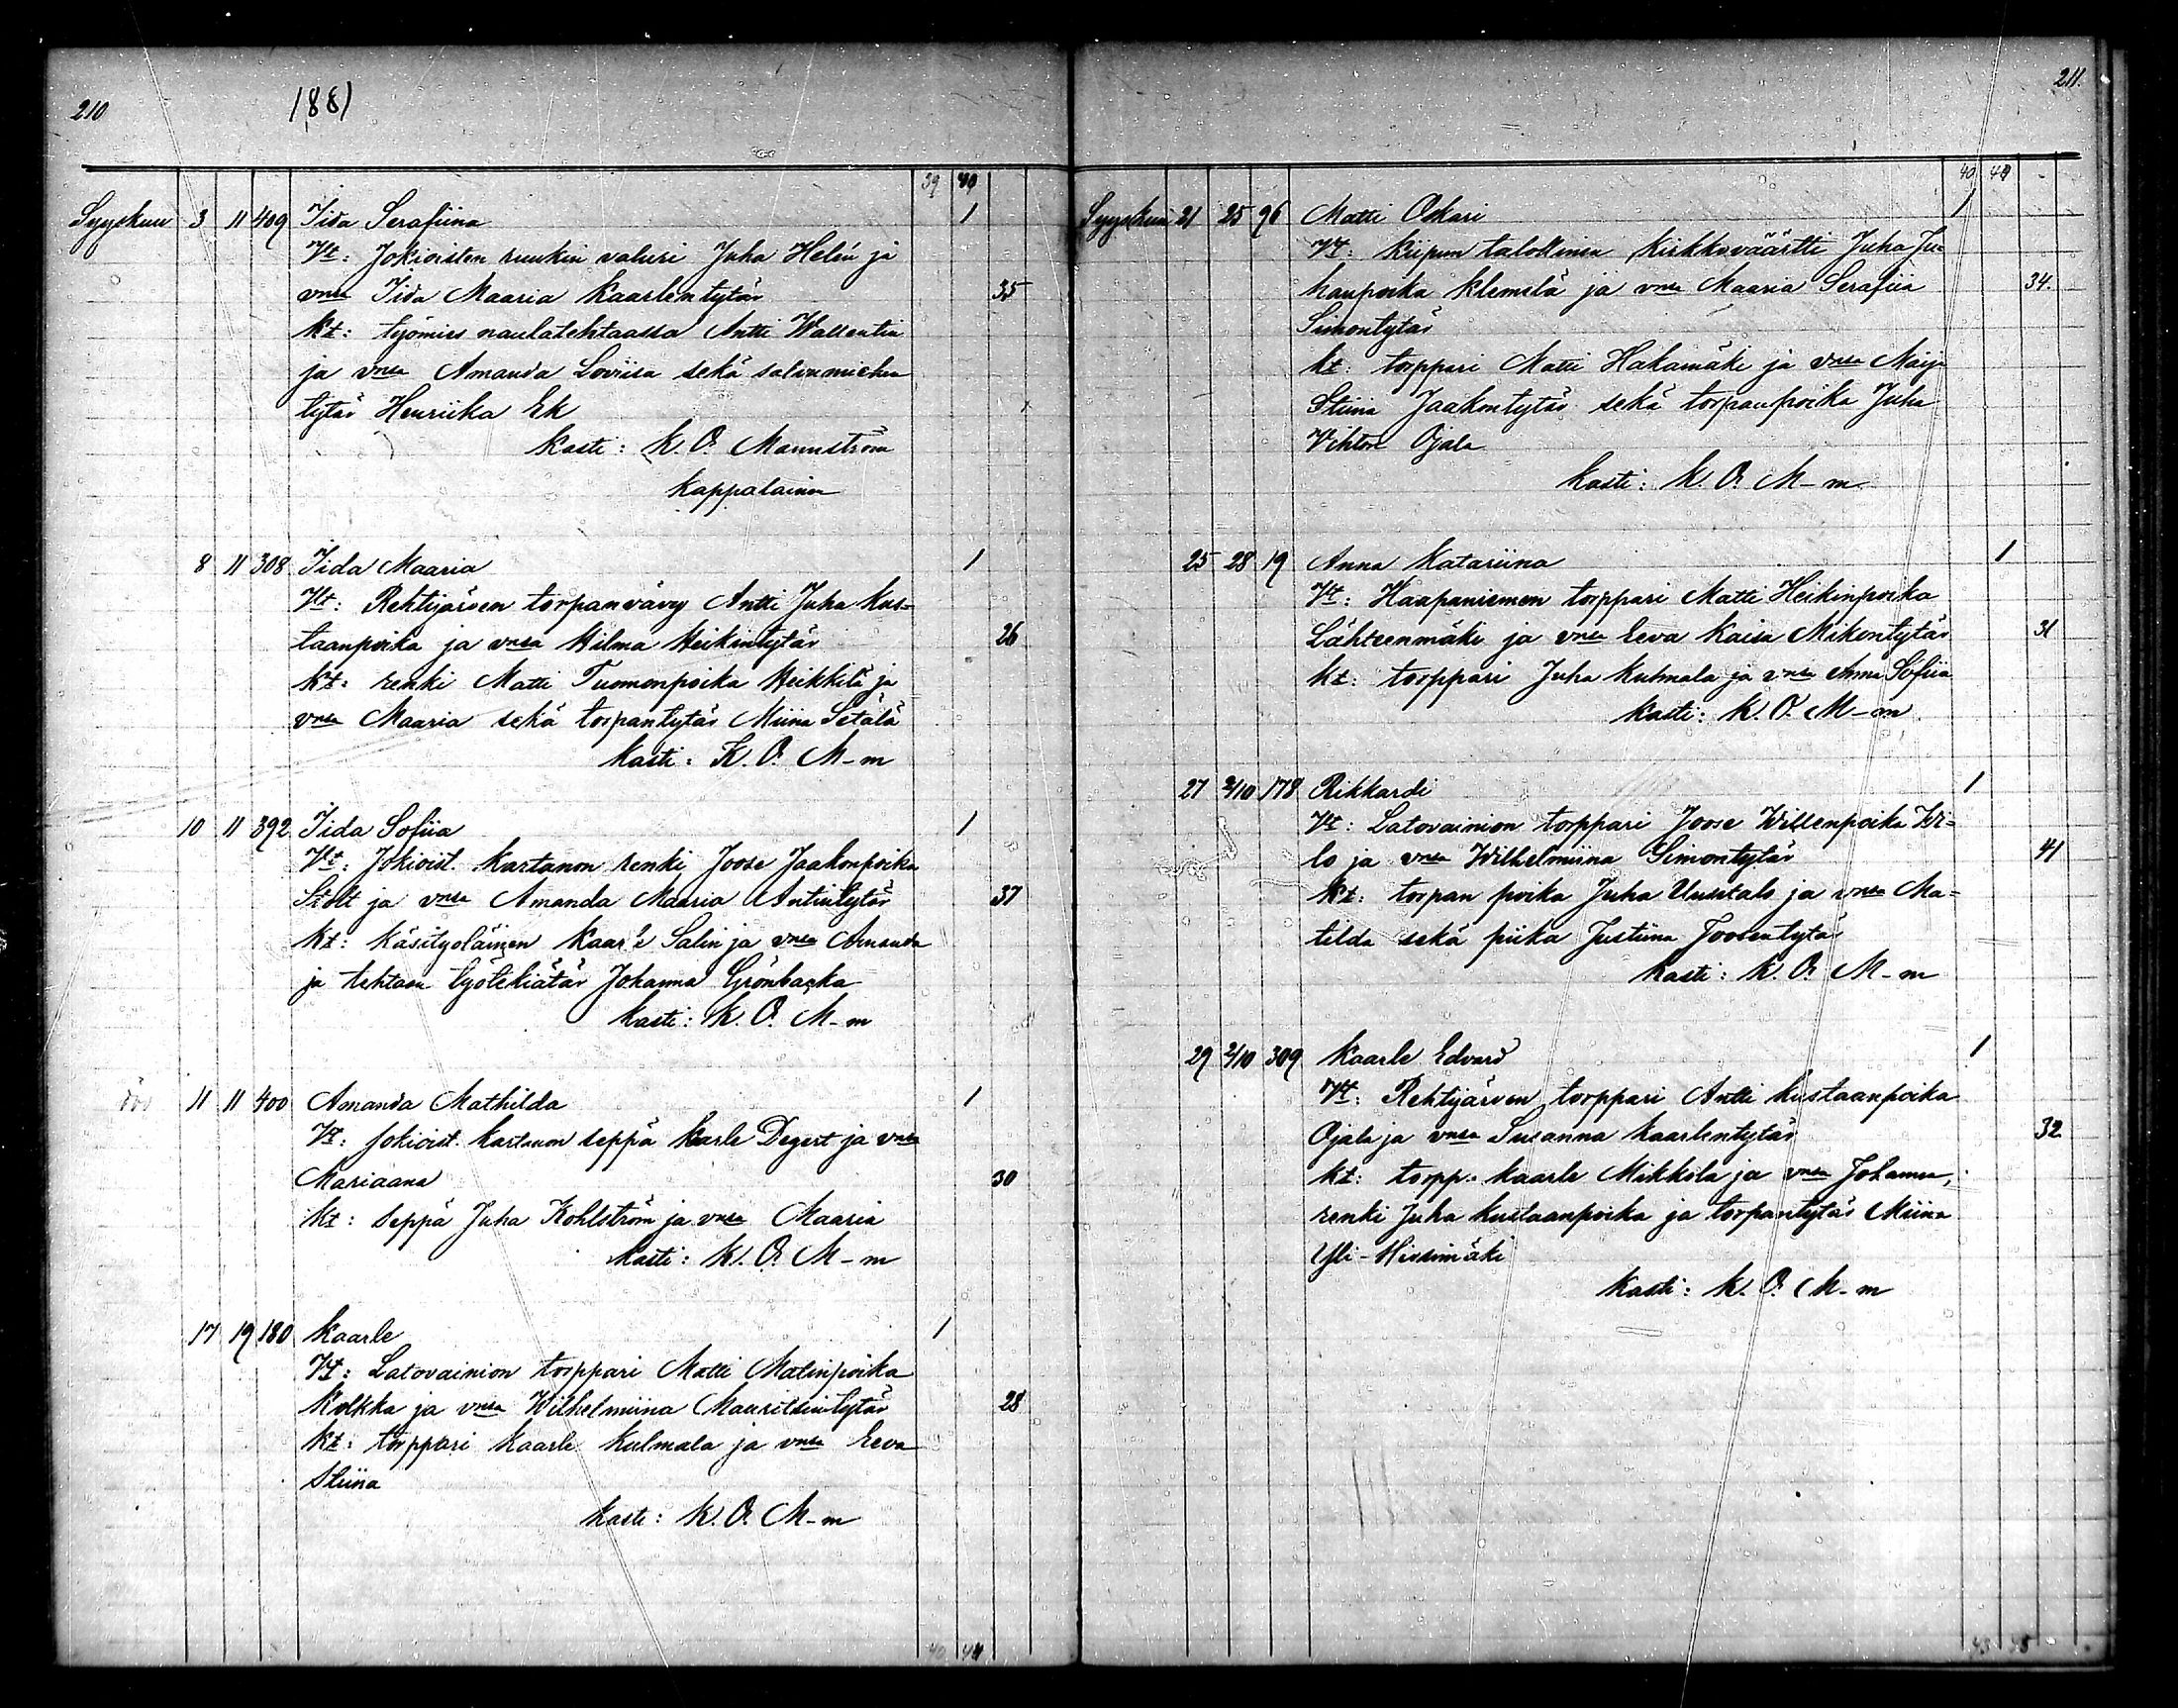 210
1881
39 40
Syyskuu 3 11 409 Iida Serafiina 1
Vt: Jokioisten ruukin valuri Juha Helén ja
vmsa Iida Maaria Kaarlentytär 35
Kt: työmies naulatehtaassa Antti Wallentin
ja vmsa Amanda Loviisa sekä
tytär Henriika Ek
Kasti: K. O. Mannström
Kappalainen
8 11 308 Iida Maaria 1
Vt: Rehtijärven torpanvävy Antti Juha Kus=
taanpoika ja vmsa Hilma Heikintytär 26
Kt: renki Matti Tuomonpoika Heikkilä ja
vmsa Maaria sekä torpantytär Miina Setälä
Kasti: K. O. M-m
10 11 392 Iida Sofiia 1
Vt: Jokioist. kartanon renki Joose Jaakonpoika
Stolt ja vmsa Amanda Maaria Antintytär 37
Kt: Käsityöläinen Kaarle Salin ja vmsa Amanda
ja tehtaan työtekiätär Johanna Grönbacka
Kasti: K. O. M-m
11 11 400 Amanda Mathilda 1
Vt: Jokioist. kartanon seppä Karle Degert ja vmsa
Mariaana 30
Kt: seppä Juha Kohlström ja vmsa Maaria
Kasti: K. O. M-m
17 19 180 Kaarle 1
Vt: Latovainion torppari Matti Matinpoika
Kolkka ja vmsa Wilhelmiina Mauritsintytär 28
Kt: torppari Kaarle Kulmala ja vmsa Eeva
Stiina
Kasti: K. O. M-m
40 44
211.
40 40
Syyskuu 21 25 96 Matti Oskari 1
Vt: Kiipun talollinen kirkkoväärtti Juha Ju=
hanpoika Klemelä ja vmsa Maaria Serafiia 34.
Simontytär
kt: torppari Matti Hakamäki ja vmsa Maija
Stiina Jaakontytär sekä torpanpoika Juha
Vihtori Ojala
Kasti: K. O. M-m.
25 28 19 Anna Katariina 1
Vt: Haapaniemen torppari Matti Heikinpoika
Lähteenmäki ja vmsa Eeva Kaisa Mikontytär 31
kt: torppari Juha Kulmala ja vmsa Anna Sofiia
Kasti: K. O. M-m.
27 2/10 178 Rikkardi 1
Vt: Latovainion torppari Joose Willenpoika Wi=
lo ja vmsa Wilhelmiina Simontytär 41
Kt: torpan poika Juha Uusitalo ja vmsa Ma=
tilda sekä piika Justiina Joosentytär
Kasti: K. O. M-m
29 2/10 309 Kaarle Edvard 1
Vt: Rehtijärven torppari Antti Kustaanpoika
Ojala ja vmsa Susanna Kaarlentytär 32
kt: torpp. Kaarle Mikkola ja vmsa Johanna,
renki Juha Kustaanpoika ja torpantytär Miina
Yli-Hirsimäki
Kasti: K. O. M-m